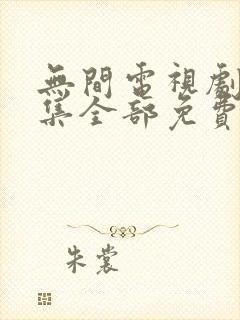 無間電視劇
集全部免費
朱裳